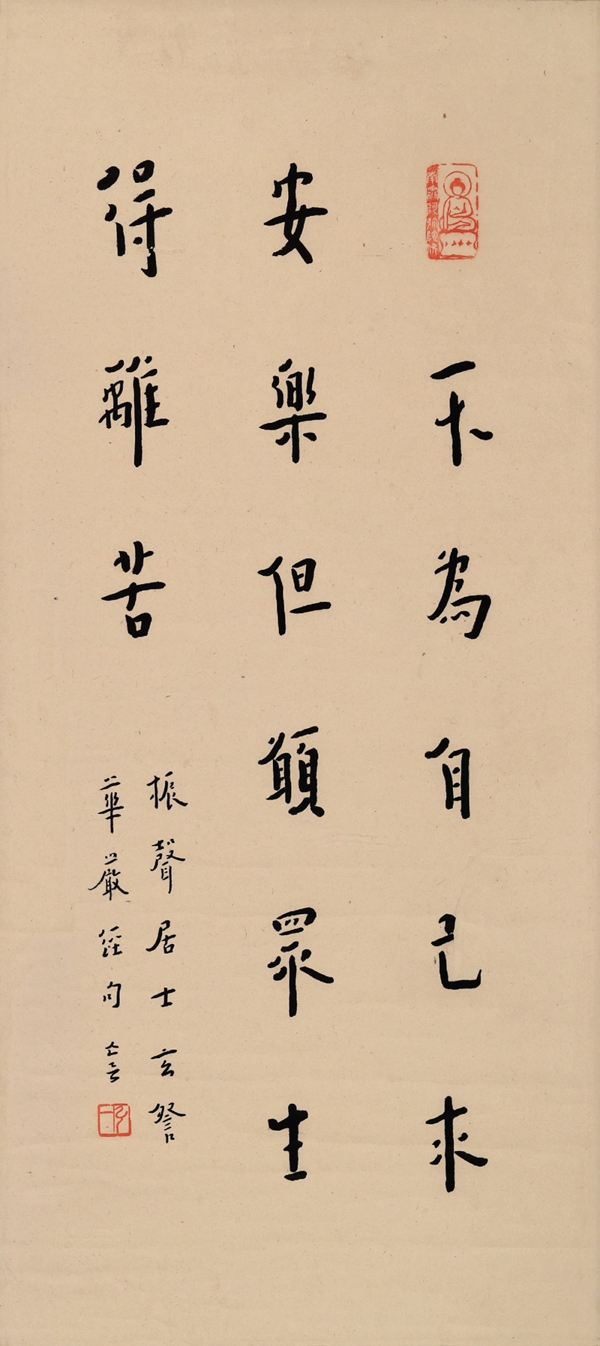 不為自己求
安樂但願眾生
得離苦
振聲居士玄詧
華嚴經句
弘一